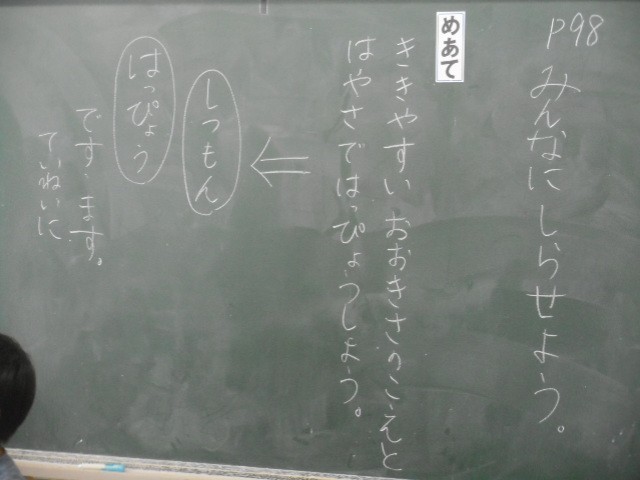 P98
みんなにしらせよう。
めあて
ききやすいおおきさのこえと
はやさではっぴょうしよう。
しつもん
はっぴょう
です・ます。
ていねいに